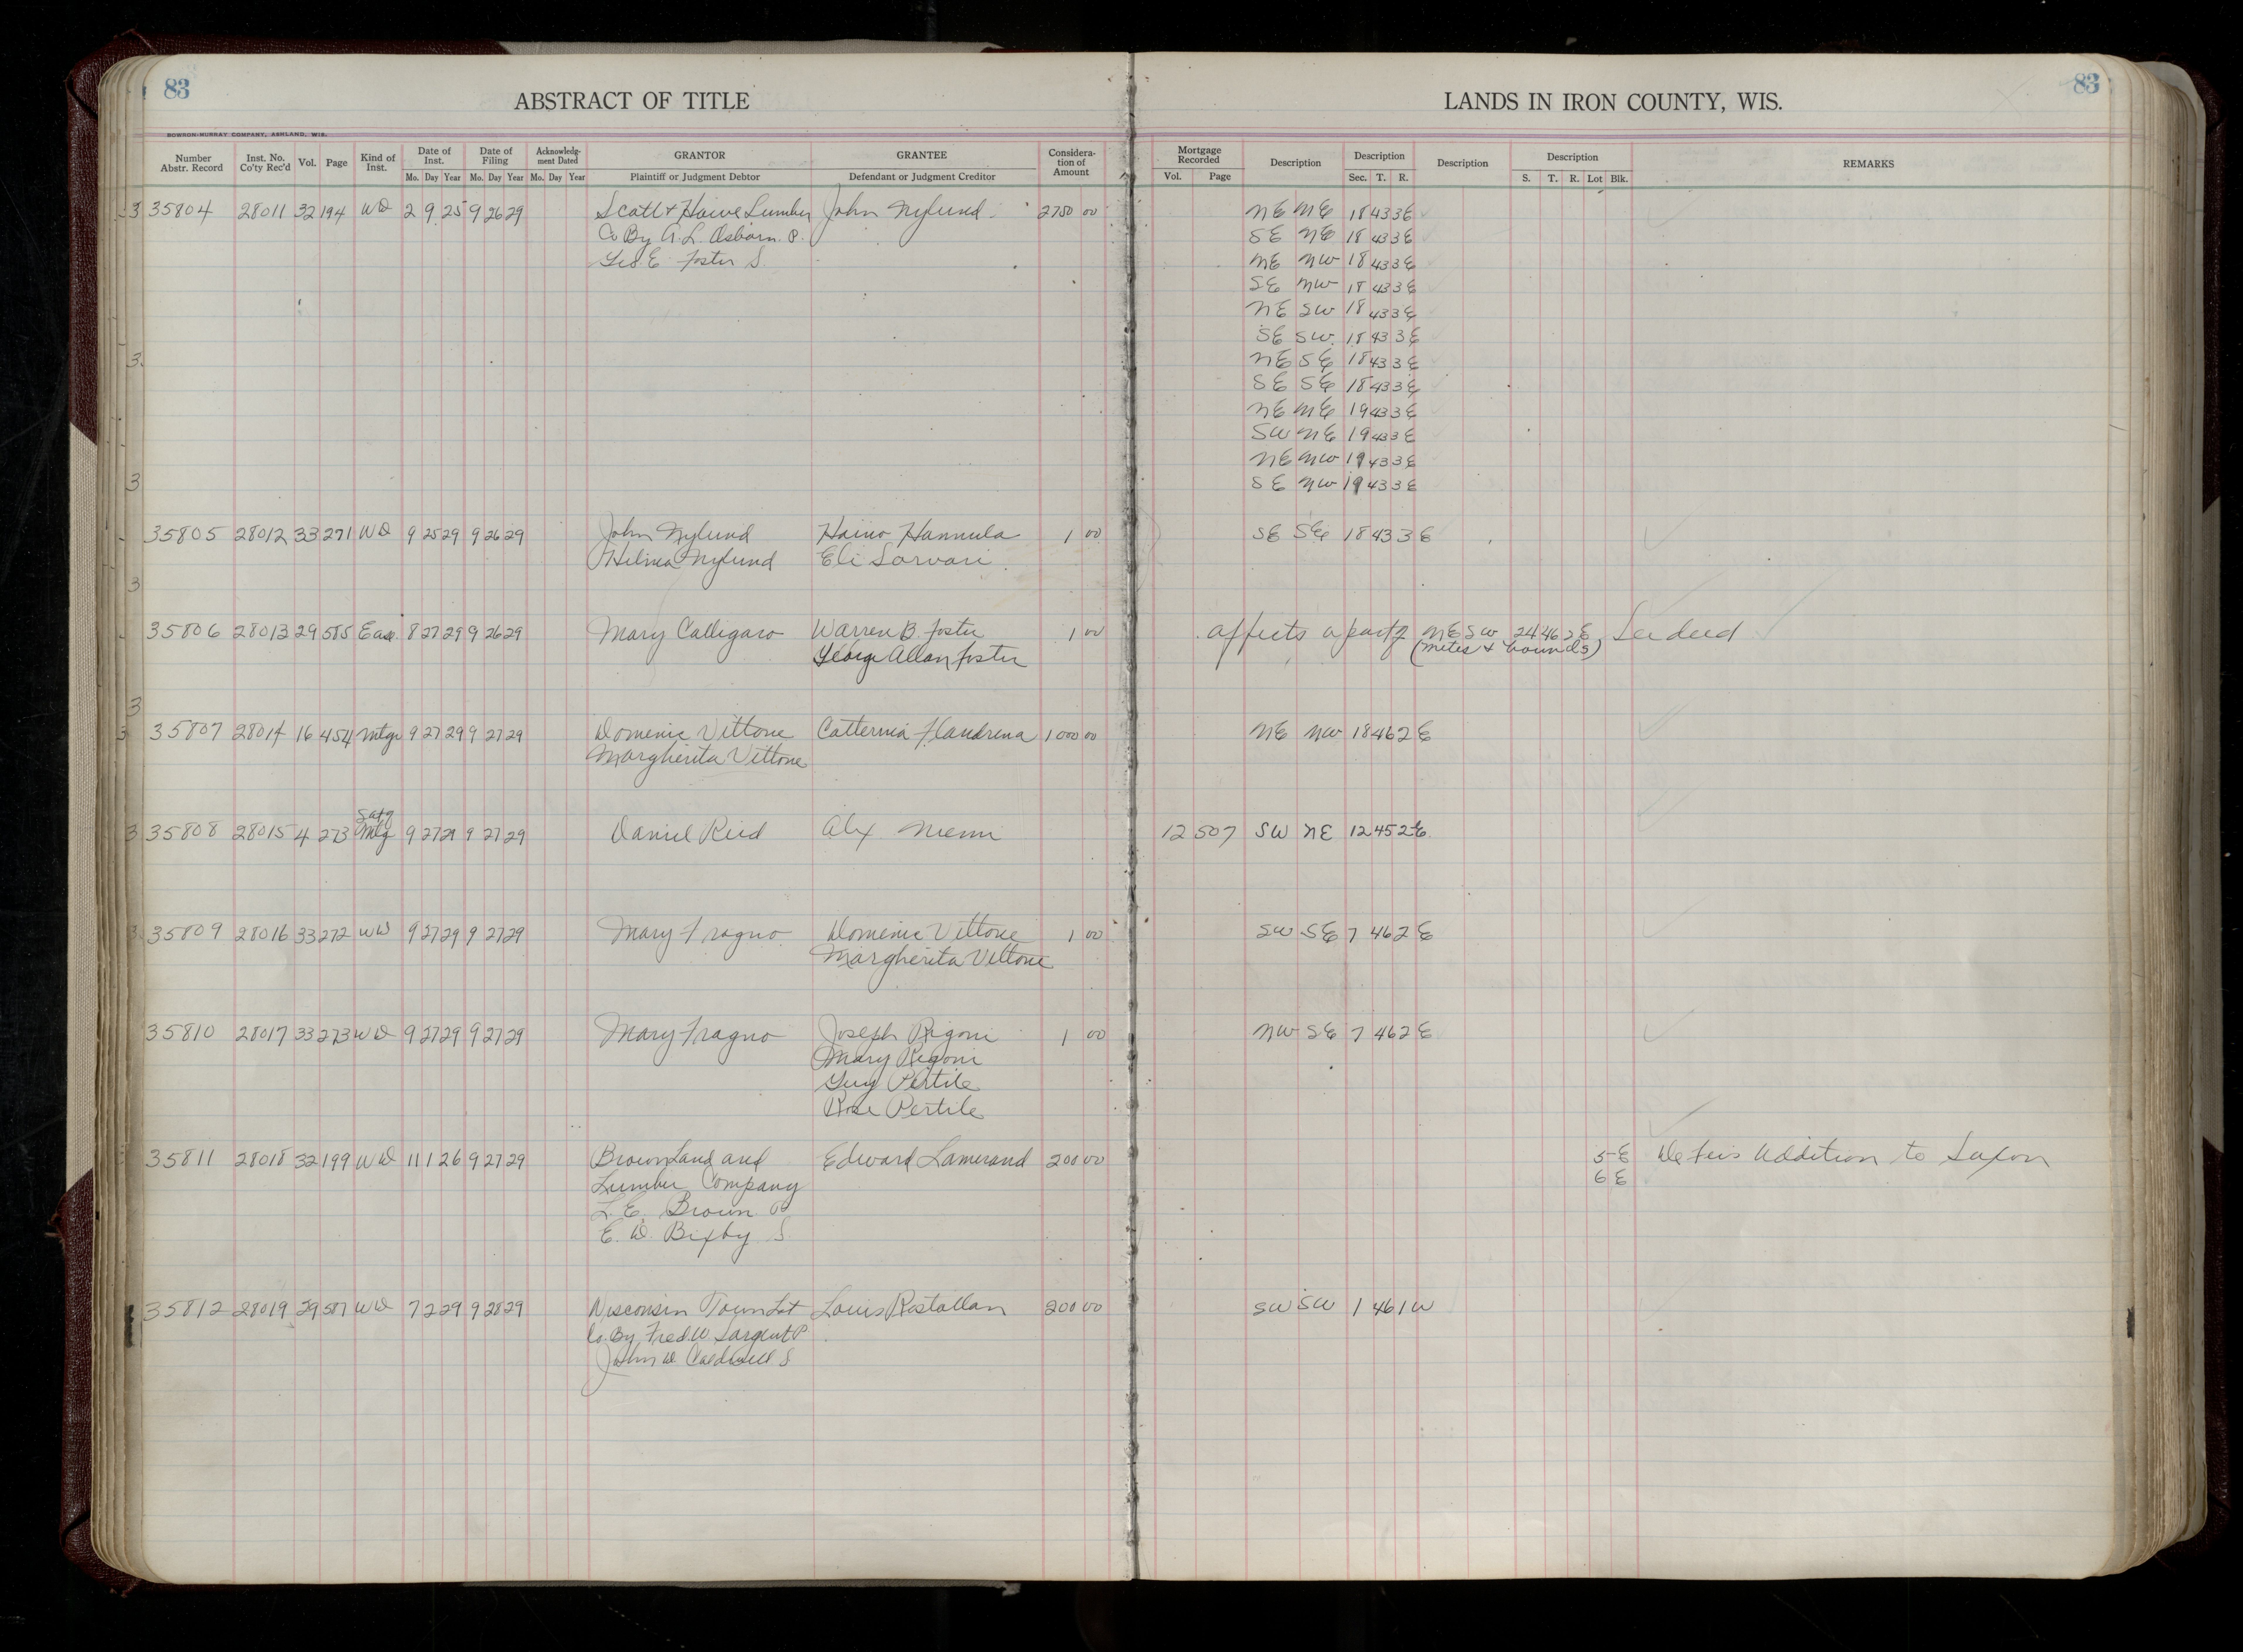 83
ABSTRACT OF TITLE
LANDS IN IRON COUNTY, WIS.
83
BOWRON-MURRAY COMPANY, ASHLAND, WIS.
Number Abstr. Record | Inst. No. Co'ty Rec'd | Vol. | Page | Kind of Inst. | Date of Inst. Mo. Day Year | Date of Filing Mo. Day Year | Acknowledg-ment Dated Mo. Day Year | GRANTOR Plaintiff or Judgment Debtor | GRANTEE Defendant or Judgment Creditor | Considera-tion of Amount | Mortgage Recorded Vol. Page | Description | Description Sec. T. R. | Description | Description S. T. R. Lot Blk. | REMARKS
35804 28011 32 194 WD 2 9 25 9 26 29 Scott & Howe Lumber John Nylund 2750 00 NE NE 18 43 3E
Co By A. L. Osborn P. SE NE 18 43 3E
Geo. E. Foster S. NE NW 18 43 3E
SE NW 18 43 3E
NE SW 18 43 3E
SE SW 18 43 3E
NE SE 18 43 3E
SE SE 18 43 3E
NE NE 19 43 3E
SW NE 19 43 3E
NE NW 19 43 3E
SE NW 19 43 3E
35805 28012 33 271 WD 9 25 29 9 26 29 John Nylund Haino Hannula 1 00 SE SE 18 43 3E
Hilma Nylund Eli Sarvari
35806 28013 29 585 Ease 8 27 29 9 26 29 Mary Calligaro Warren B. Foster 1 00 affects a part of NE SW 24 46 2E See deed
George Allan Foster (metes & bounds)
35807 28014 16 454 Mtge 9 27 29 9 27 29 Domenic Vittone Catterina Flandrena 1000 00 NE NW 18 46 2E
Margherita Vittone
Sat of
35808 28015 4 273 Mtg 9 27 29 9 27 29 Daniel Reid Alex 12 507 SW NE 12 45 2E
35809 28016 33 272 WD 9 27 29 9 27 29 Mary Fragno Domenic Vittone 1 00 SW SE 7 46 2E
Margherita Vittone
35810 28017 33 273 WD 9 27 29 9 27 29 Mary Fragno Joseph Rigoni 1 00 NW SE 7 46 2E
Mary Rigoni
Guy Pertile
Rose Pertile
35811 28018 32 199 WD 11 1 26 9 27 29 Brown Land and Edward Lamerand 200 00 5 E Addition to Saxon
Lumber Company 6 E
L. E. Brown P.
E. D. Bixby S
35812 28019 29 587 WD 7 2 29 9 28 29 Wisconsin Town Lot Louis Rostollan 200 00 SW SW 1 46 1W
Co. By Fred W. Sargent P
John D. Caldwell S